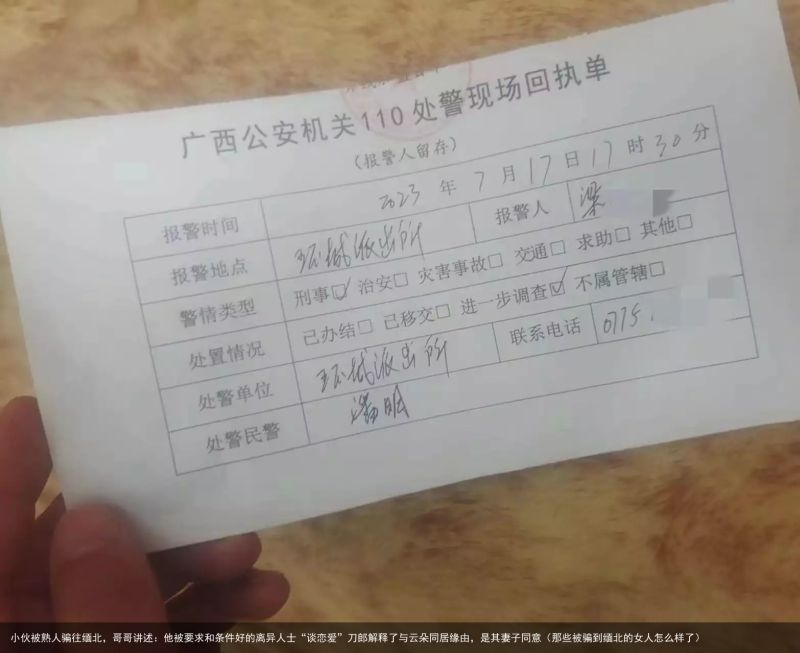 广西公安机关110处警现场回执单
（报警人留存）
报警时间 2023 年 7 月 17 日 17 时 30 分
报警地点 环城派出所 报警人 梁
警情类型 刑事☑ 治安□ 灾害事故□ 交通□ 求助□ 其他□
处置情况 已办结□ 已移交□ 进一步调查☑ 不属管辖□
处警单位 环城派出所 联系电话 0775
处警民警
小伙被熟人骗往缅北，哥哥讲述：他被要求和条件好的离异人士“谈恋爱”刀郎解释了与云朵同居缘由，是其妻子同意（那些被骗到缅北的女人怎么样了）